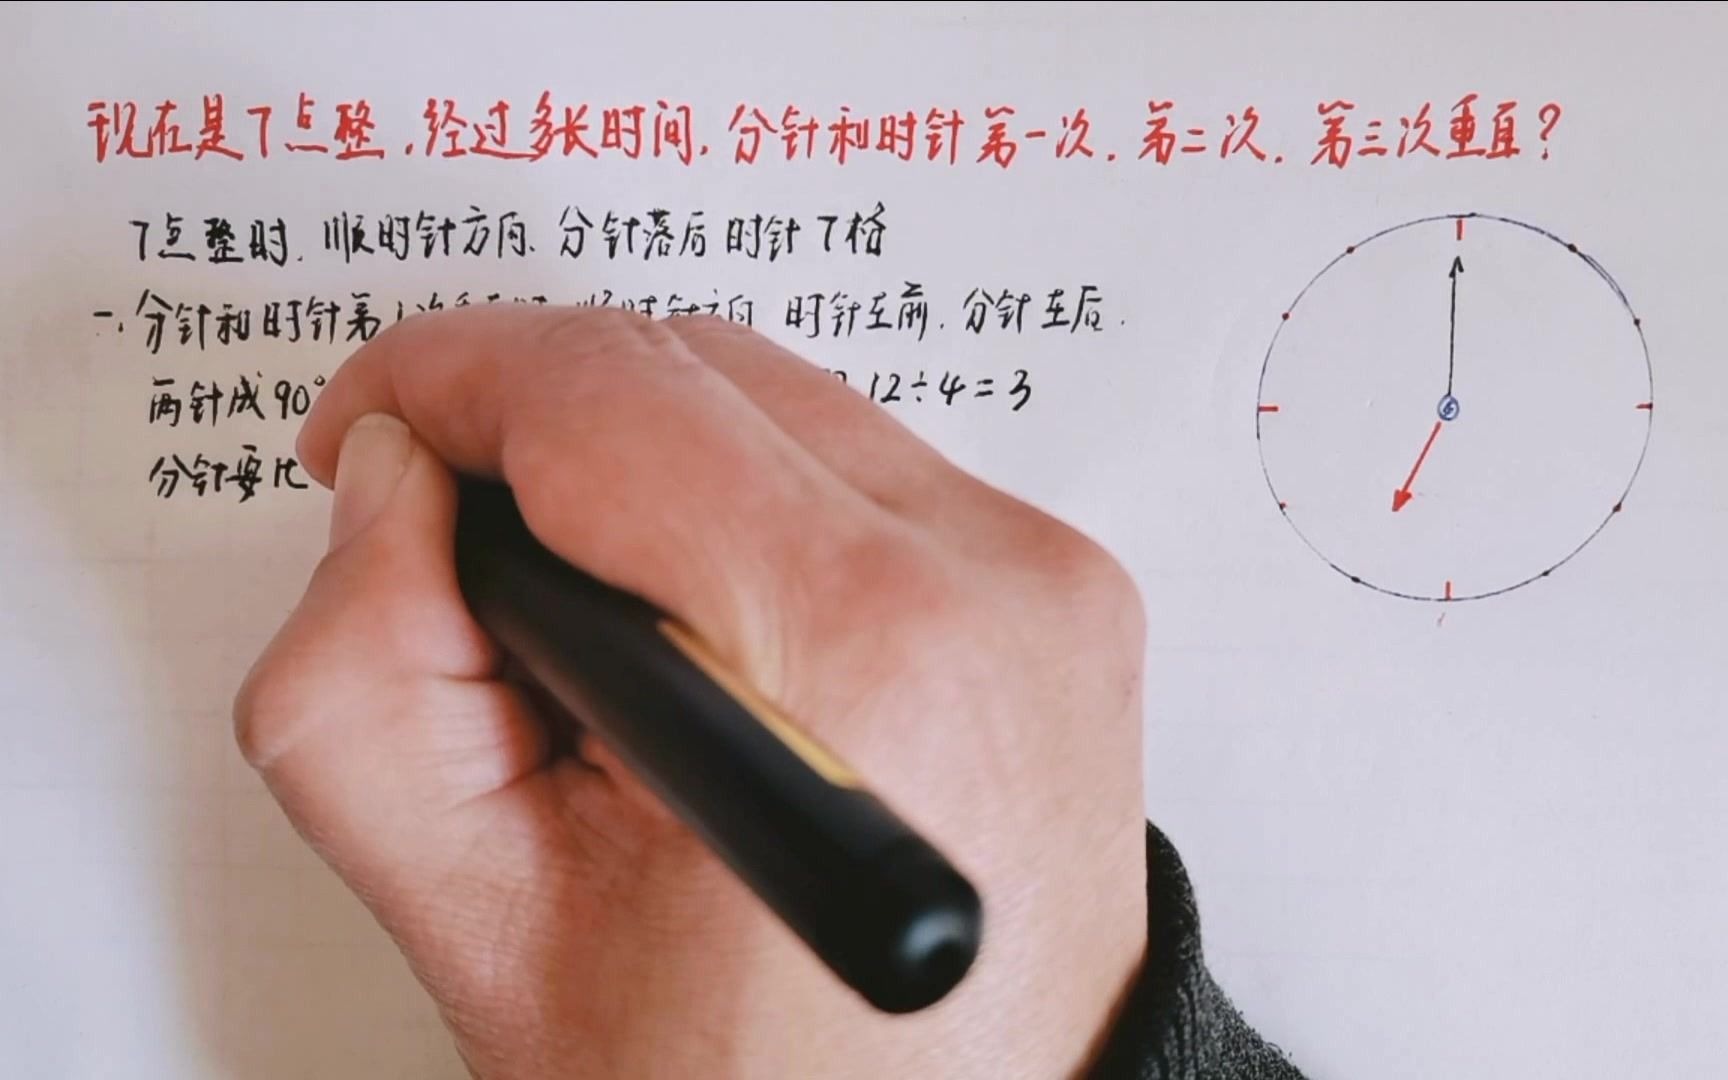 现在是7点整,经过多长时间,分针和时针第一次,第二次,第三次垂直?
7点整时,顺时针方向,分针落后时针7格
一、分针和时针第1次 时针在前,分针在后.
两针成90° 12÷4=3
分针要比